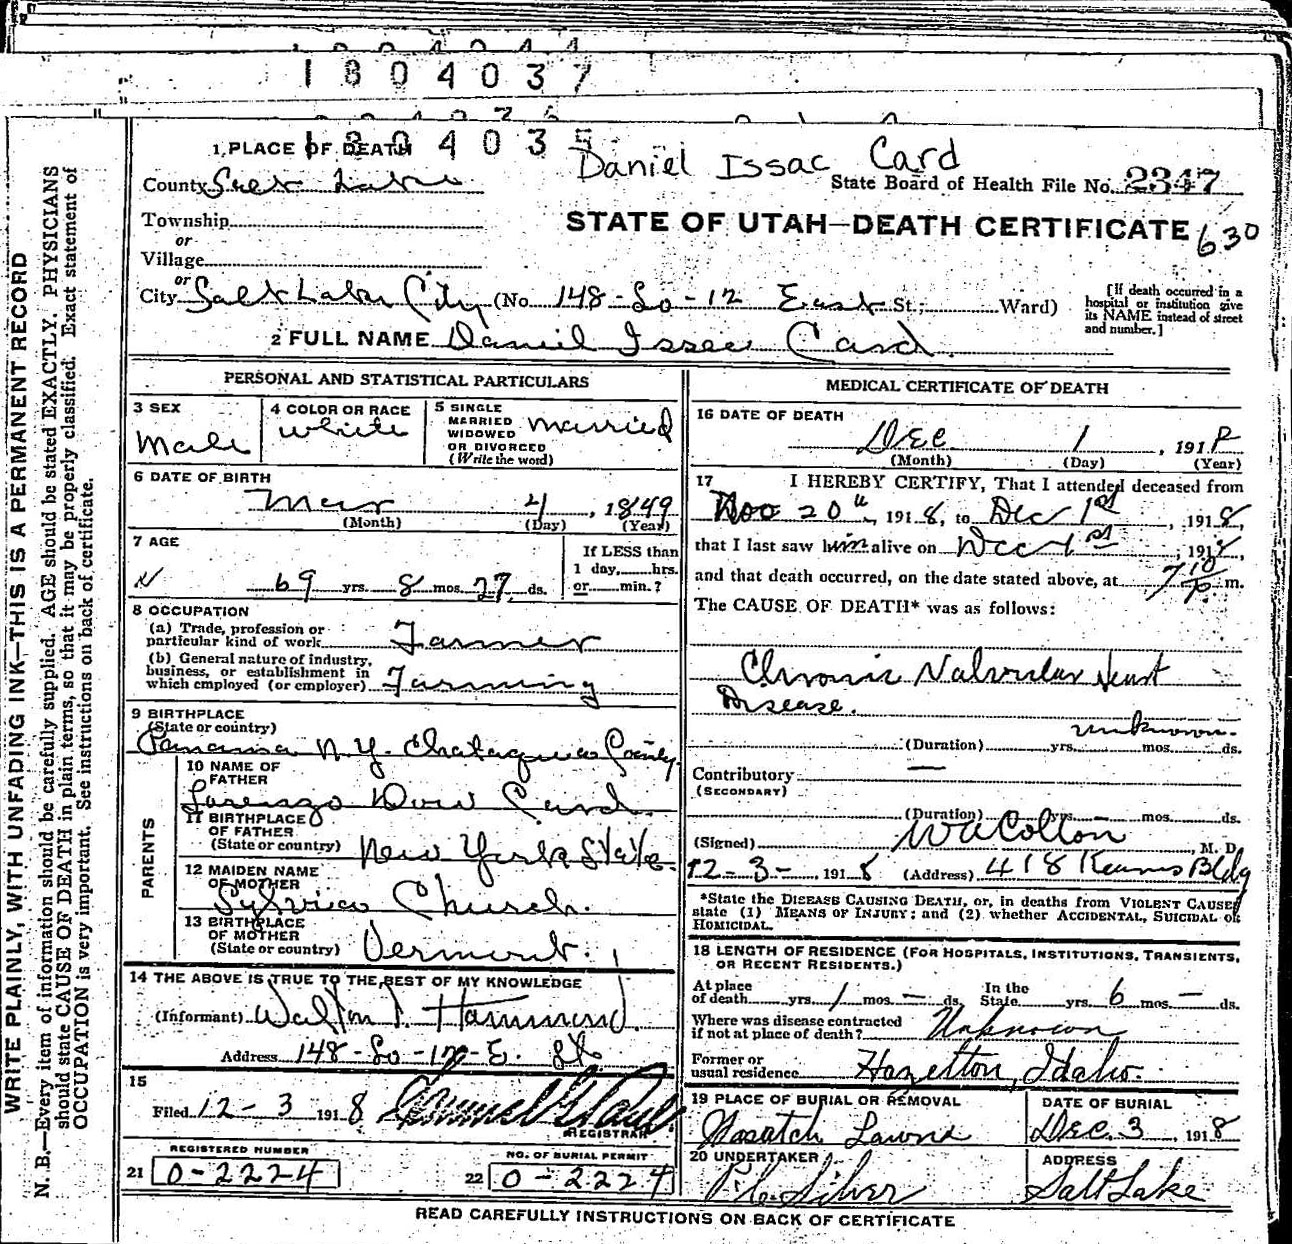 1804037
1804035
Daniel Issac Card
1 PLACE OF DEATH
County Salt Lake
State Board of Health File No. 2347
Township
or
Village
STATE OF UTAH—DEATH CERTIFICATE
630
or
City Salt Lake City (No. 148-So-12 East St.; Ward)
[If death occurred in a hospital or institution give its NAME instead of street and number.]
2 FULL NAME Daniel Issac Card
WRITE PLAINLY, WITH UNFADING INK—THIS IS A PERMANENT RECORD
N. B.—Every item of information should be carefully supplied. AGE should be stated EXACTLY. PHYSICIANS
should state CAUSE OF DEATH in plain terms, so that it may be properly classified. Exact statement of
OCCUPATION is very important. See instructions on back of certificate.
PERSONAL AND STATISTICAL PARTICULARS
3 SEX
Male
4 COLOR OR RACE
White
5 SINGLE
MARRIED
WIDOWED
OR DIVORCED
(Write the word)
Married
6 DATE OF BIRTH
Mar 4, 1849
(Month) (Day) (Year)
7 AGE
69 yrs. 8 mos. 27 ds.
If LESS than
1 day, hrs.
or min.?
8 OCCUPATION
(a) Trade, profession or
particular kind of work Farmer
(b) General nature of industry,
business, or establishment in
which employed (or employer) Farming
9 BIRTHPLACE
(State or country)
Panama N.Y. Chataqua County
PARENTS
10 NAME OF
FATHER
Lorenzo Dow Card
11 BIRTHPLACE
OF FATHER
(State or country) New York State
12 MAIDEN NAME
OF MOTHER
Sylvia Church.
13 BIRTHPLACE
OF MOTHER
(State or country) Vermont.
14 THE ABOVE IS TRUE TO THE BEST OF MY KNOWLEDGE
(Informant) Hammond
Address 148-So-12-E. St
15
Filed 12-3 1918
REGISTRAR
REGISTERED NUMBER
21 0-2224
NO. OF BURIAL PERMIT
22 0-2224
MEDICAL CERTIFICATE OF DEATH
16 DATE OF DEATH
Dec 1, 1918
(Month) (Day) (Year)
17 I HEREBY CERTIFY, That I attended deceased from
Nov 20th, 1918, to Dec 1st, 1918,
that I last saw him alive on Dec 1st, 1918,
and that death occurred, on the date stated above, at 7 10 P. m.
The CAUSE OF DEATH* was as follows:
Chronic Valvular Heart
Disease.
unknown.
(Duration) yrs. mos. ds.
Contributory —
(SECONDARY)
(Duration) yrs. — mos. ds.
(Signed) W A Colton, M. D.
12-3- 1918 (Address) 418 Kearns Bldg
*State the DISEASE CAUSING DEATH, or, in deaths from VIOLENT CAUSES
state (1) MEANS OF INJURY; and (2) whether ACCIDENTAL, SUICIDAL OR
HOMICIDAL.
18 LENGTH OF RESIDENCE (FOR HOSPITALS, INSTITUTIONS, TRANSIENTS,
OR RECENT RESIDENTS.)
At place
of death yrs. 1 mos. — ds. In the
State yrs. 6 mos. — ds.
Where was disease contracted
if not at place of death? Unknown
Former or
usual residence Hazelton, Idaho.
19 PLACE OF BURIAL OR REMOVAL
Wasatch Lawn
DATE OF BURIAL
Dec. 3, 1918
20 UNDERTAKER
Silver
ADDRESS
Salt Lake
READ CAREFULLY INSTRUCTIONS ON BACK OF CERTIFICATE